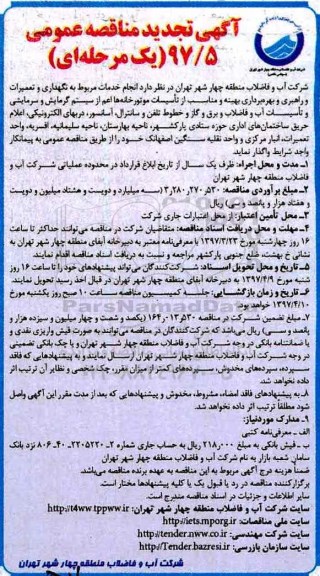 آگهی تجدید مناقصه عمومی
۹۷/۵ (یک مرحله‌ای)
شرکت آب و فاضلاب منطقه چهار شهر تهران در نظر دارد انجام خدمات مربوط به نگهداری و تعمیرات
و راهبری و بهره‌برداری بهینه و مناسب از تأسیسات موتورخانه‌ها اعم از سیستم گرمایش و سرمایشی
و تأسیسات آب و فاضلاب و برق و گاز و خطوط تلفن و سانترال، آسانسور، دربهای الکترونیکی، اعلام
حریق ساختمان‌های اداری حوزه ستادی یارکشهر، ناحیه بهارستان، ناحیه سلیمانیه، افسریه، واحد
تعمیرات، انبار مرکزی و واحد نقلیه سنگین اصفهانک خود را از طریق مناقصه عمومی به پیمانکار
واجد شرایط واگذار نماید.
۱ـ مدت و محل اجراء: ظرف یک سال از تاریخ ابلاغ قرارداد در محدوده عملیاتی شرکت آب و
فاضلاب منطقه چهار شهر تهران
۲ـ مبلغ برآوردی مناقصه: ۳٫۲۸۰٫۲۷۰٫۵۳۰ (سه میلیارد و دویست و هشتاد میلیون و دویست
و هفتاد هزار و پانصد و سی) ریال
۳ـ محل تأمین اعتبار: از محل اعتبارات جاری شرکت
۴ـ مهلت و محل دریافت اسناد مناقصه: متقاضیان شرکت در مناقصه می‌توانند حداکثر تا ساعت
۱۶ روز چهارشنبه مورخ ۱۳۹۷/۳/۲۳ با معرفی‌نامه معتبر به دبیرخانه آبفای منطقه چهار شهر تهران به
نشانی خ بهشت، ضلع جنوبی پارکشهر مراجعه و نسبت به دریافت اسناد مناقصه اقدام نمایند.
۵ـ تاریخ و محل تحویل اسناد: شرکت‌کنندگان می‌توانند پیشنهادهای خود را تا ساعت ۱۶ روز
شنبه مورخ ۱۳۹۷/۴/۹ به دبیرخانه آبفای منطقه چهار تهران در قبال اخذ رسید تحویل نمایند.
۶ـ تاریخ و زمان بازگشایی: جلسه کمیسیون مناقصه ساعت ۱۰ صبح روز یکشنبه مورخ
۱۳۹۷/۴/۱۰ خواهد بود.
۷ـ مبلغ تضمین شرکت در مناقصه ۱۶۴٫۰۱۳٫۵۳۰ (یکصد و شصت و چهار میلیون و سیزده هزار و
پانصد و سی) ریال می‌باشد که شرکت‌کنندگان در مناقصه می‌توانند به صورت فیش واریزی نقدی و
یا ضمانتنامه بانکی در وجه شرکت آب و فاضلاب منطقه چهار شهر تهران و یا چک بانکی تضمینی
در وجه شرکت آب و فاضلاب منطقه چهار شهر تهران ارسال نمایند و به پیشنهادهایی که فاقد
سپرده، سپرده‌های مخدوش، سپرده‌های کمتر از میزان مقرر، چک شخصی و نظایر آن ترتیب اثر
داده نخواهد شد.
۸ـ به پیشنهادهای فاقد امضاء، مشروط، مخدوش و پیشنهادهایی که بعد از مدت مقرر این آگهی واصل
شود مطلقاً ترتیب اثر داده نخواهد شد.
۹ـ مدارک موردنیاز:
الف ـ معرفی‌نامه کتبی
ب ـ فیش بانکی به مبلغ ۲۱۸٫۰۰۰ ریال به حساب جاری شماره
سامان شعبه بازار به نام شرکت آب و فاضلاب منطقه چهار شهر تهران
ضمناً هزینه درج آگهی مربوط به این مناقصه به عهده برنده مناقصه می‌باشد.
برگزارکننده مناقصه در رد یا قبول یک یا کلیه پیشنهادها مختار است.
سایر اطلاعات و جزئیات در اسناد مناقصه مندرج است.
سایت شرکت آب و فاضلاب منطقه چهار تهران: http://t4ww.tppww.ir
سایت ملی مناقصات: http://iets.mporg.ir
سایت شرکت مهندسی: http://tender.nww.co.ir
سایت سازمان بازرسی: http://Tender.bazresi.ir
شرکت آب و فاضلاب منطقه چهار شهر تهران